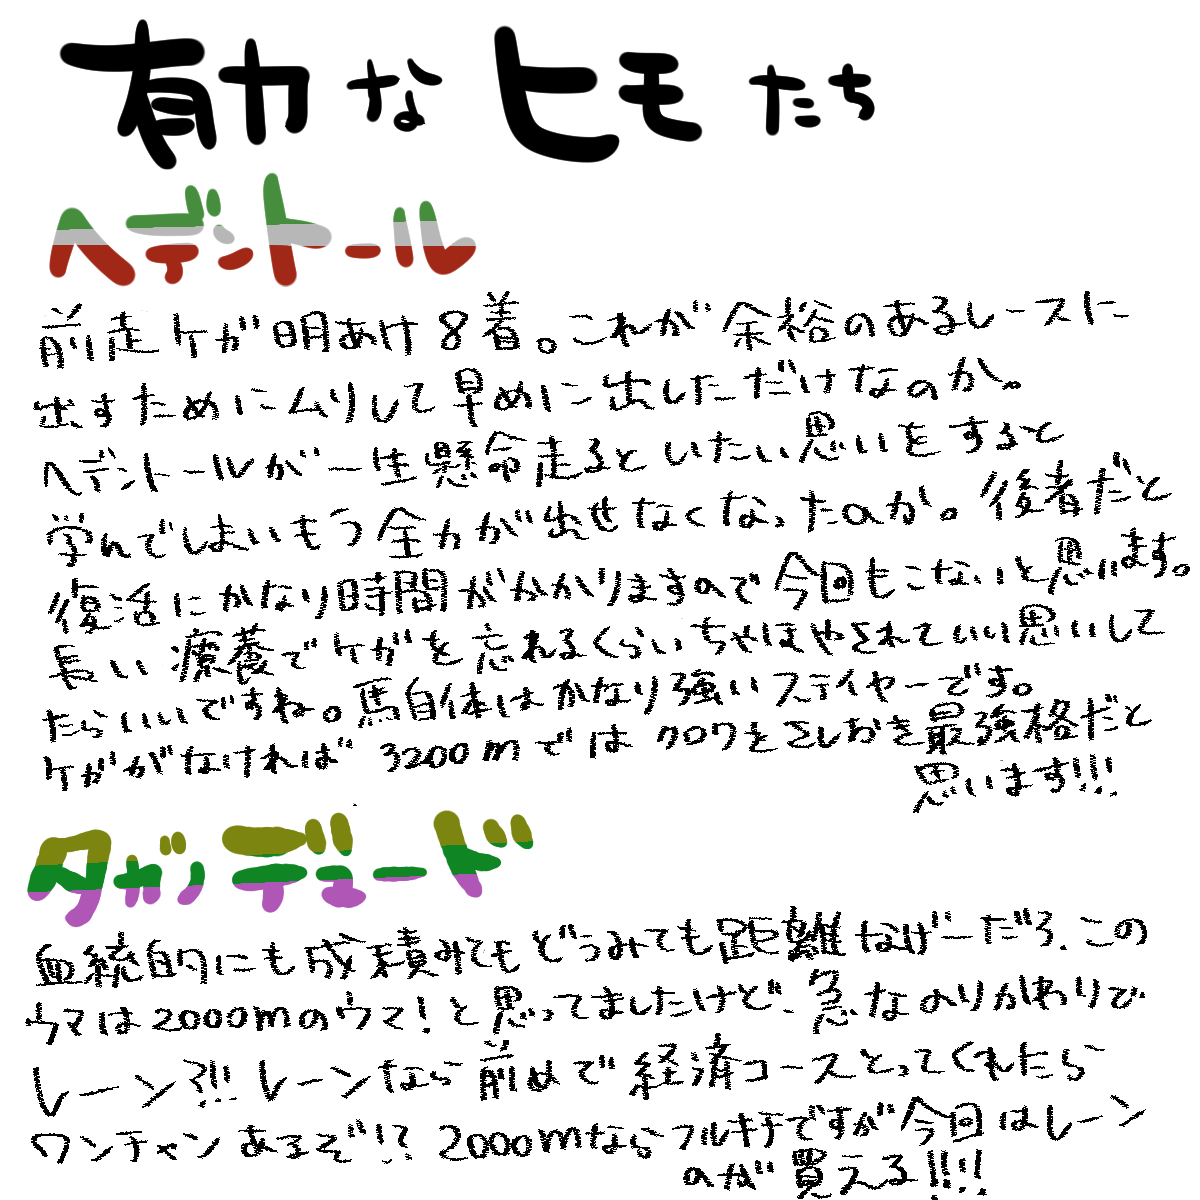 有力なヒモたち
ヘデントール
前走ケガ明あけ8着。これが余裕のあるレースに
出すためにムリして早めに出しただけなのか。
ヘデントールが一生懸命走るといたい思いをすると
学んでしまいもう全力が出せなくなったのか。後者だと
復活にかなり時間がかかりますので今回もこないと思います。
長い療養でケガを忘れるくらいちやほやされていい思いして
たらいいですね。馬自体はかなり強いステイヤーです。
ケガがなければ 3200mではクロワをさしおき最強格だと
思います!!!
タガノデュード
血統的にも成積みてもどうみても距離なげーだろ、この
ウマは2000mのウマ!と思ってましたけど、急なのりかわりで
レーン?!!! レーンなら前めで経済コースとってくれたら
ワンチャンあるぞ!? 2000mならフルキチですが今回はレーン
のが買える!!!!